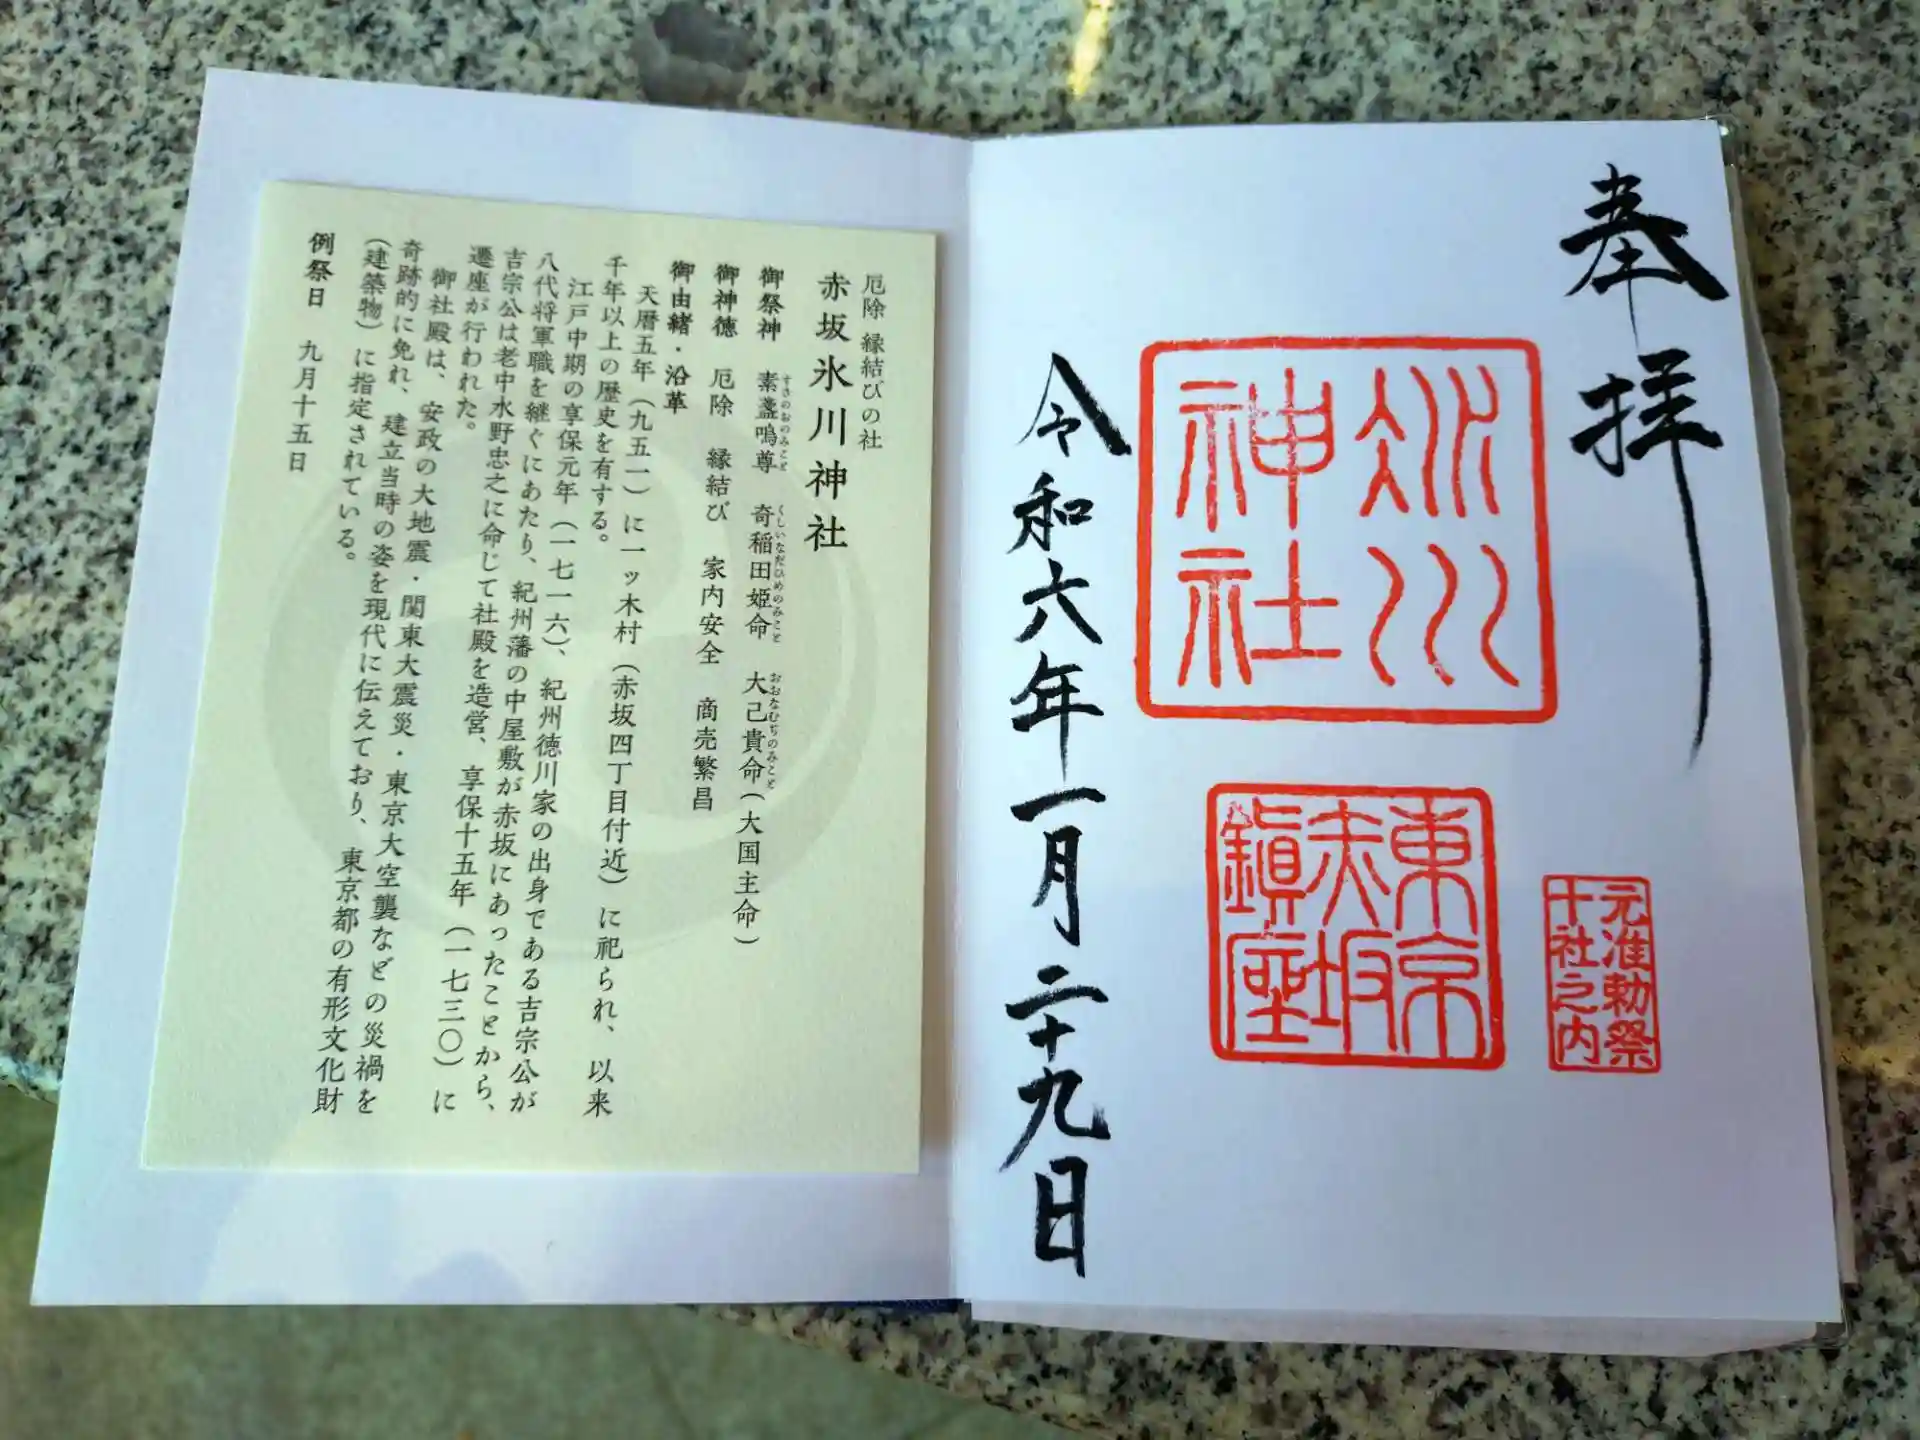 奉拝
氷川
神社
東京
赤坂
鎮座
元准勅祭
十社之内
令和六年一月二十九日
厄除 縁結びの社
赤坂氷川神社
御祭神 素盞嗚尊 奇稲田姫命 大己貴命(大国主命)
すさのおのみこと くしいなだひめのみこと おおなむぢのみこと
御神徳 厄除 縁結び 家内安全 商売繁昌
御由緒・沿革
天暦五年(九五一)に一ッ木村(赤坂四丁目付近)に祀られ、以来
千年以上の歴史を有する。
江戸中期の享保元年(一七一六)、紀州徳川家の出身である吉宗公が
八代将軍職を継ぐにあたり、紀州藩の中屋敷が赤坂にあったことから、
吉宗公は老中水野忠之に命じて社殿を造営、享保十五年(一七三〇)に
遷座が行われた。
御社殿は、安政の大地震・関東大震災・東京大空襲などの災禍を
奇跡的に免れ、建立当時の姿を現代に伝えており、東京都の有形文化財
(建築物)に指定されている。
例祭日 九月十五日